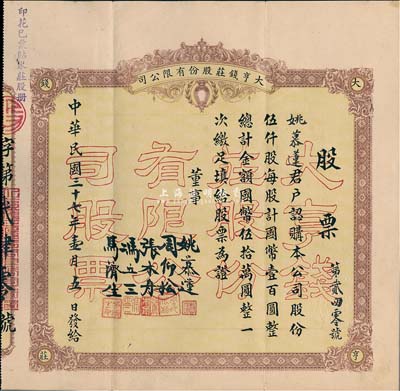 印花已彙貼在莊股册
大亨錢莊股份有限公司
大
錢
亨
莊
股票
第貳四零號
姚慕蓮君戶認購本公司股份
伍仟股每股計國幣壹百圓整
總計金額國幣伍拾萬圓整一
次繳足填給股票為證
董事
姚慕蓮
周仰松
張本舟
馮立三
馬濟生
中華民國三十七年壹月五日發給
大亨錢
莊股份
有限公
司股票
字第貳肆零號